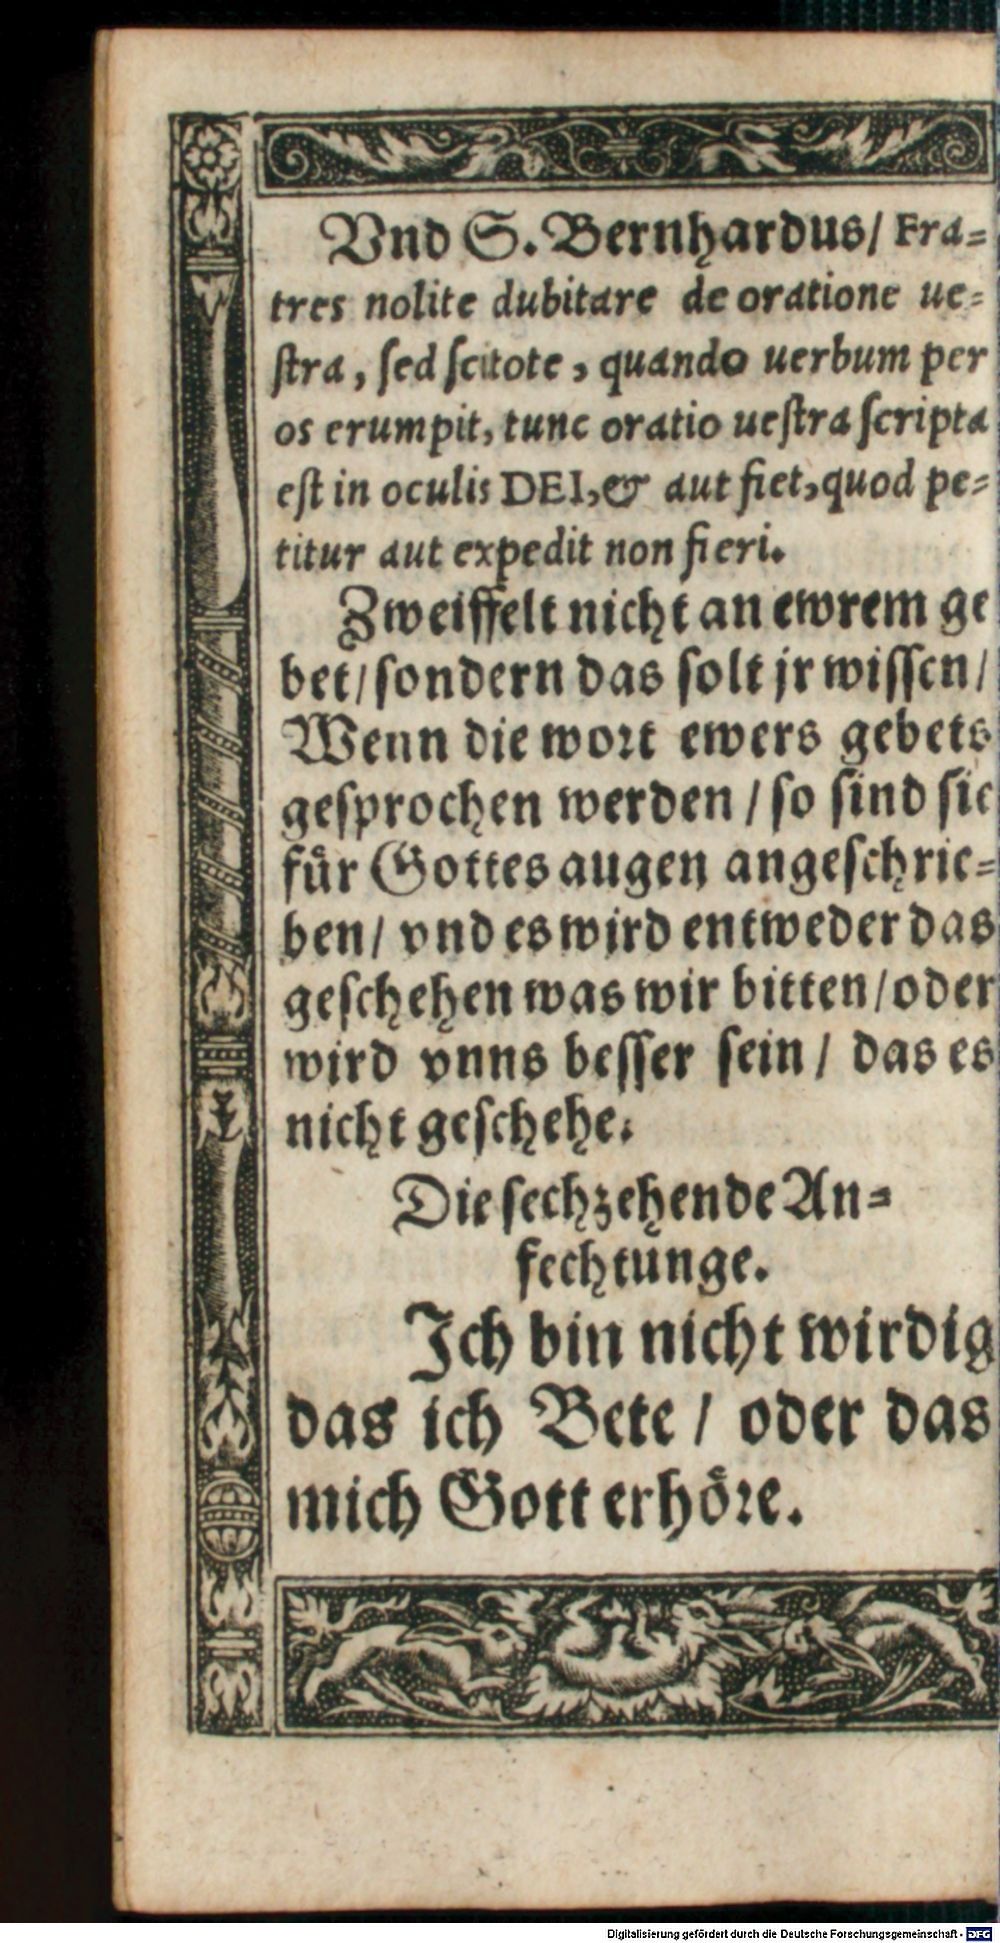 Vnd S. Bernhardus/ Fra=
tres nolite dubitare de oratione ue=
ſtra, ſed ſcitote, quando uerbum per
os erumpit, tunc oratio ueſtra ſcripta
eſt in oculis DEI, & aut fiet, quod pe=
titur aut expedit non fieri.
Zweiffelt nicht an ewrem ge
bet/ ſondern das ſolt jr wiſſen/
Wenn die wort ewers gebets
geſprochen werden / ſo ſind ſie
fuͤr Gottes augen angeſchrie=
ben/ vnd es wird entweder das
geſchehen was wir bitten/ oder
wird vnns beſſer ſein/ das es
nicht geſchehe.
Die ſechzehende An=
fechtunge.
Ich bin nicht wirdig
das ich Bete / oder das
mich Gott erhoͤre.
Digitalisierung gefördert durch die Deutsche Forschungsgemeinschaft - DFG